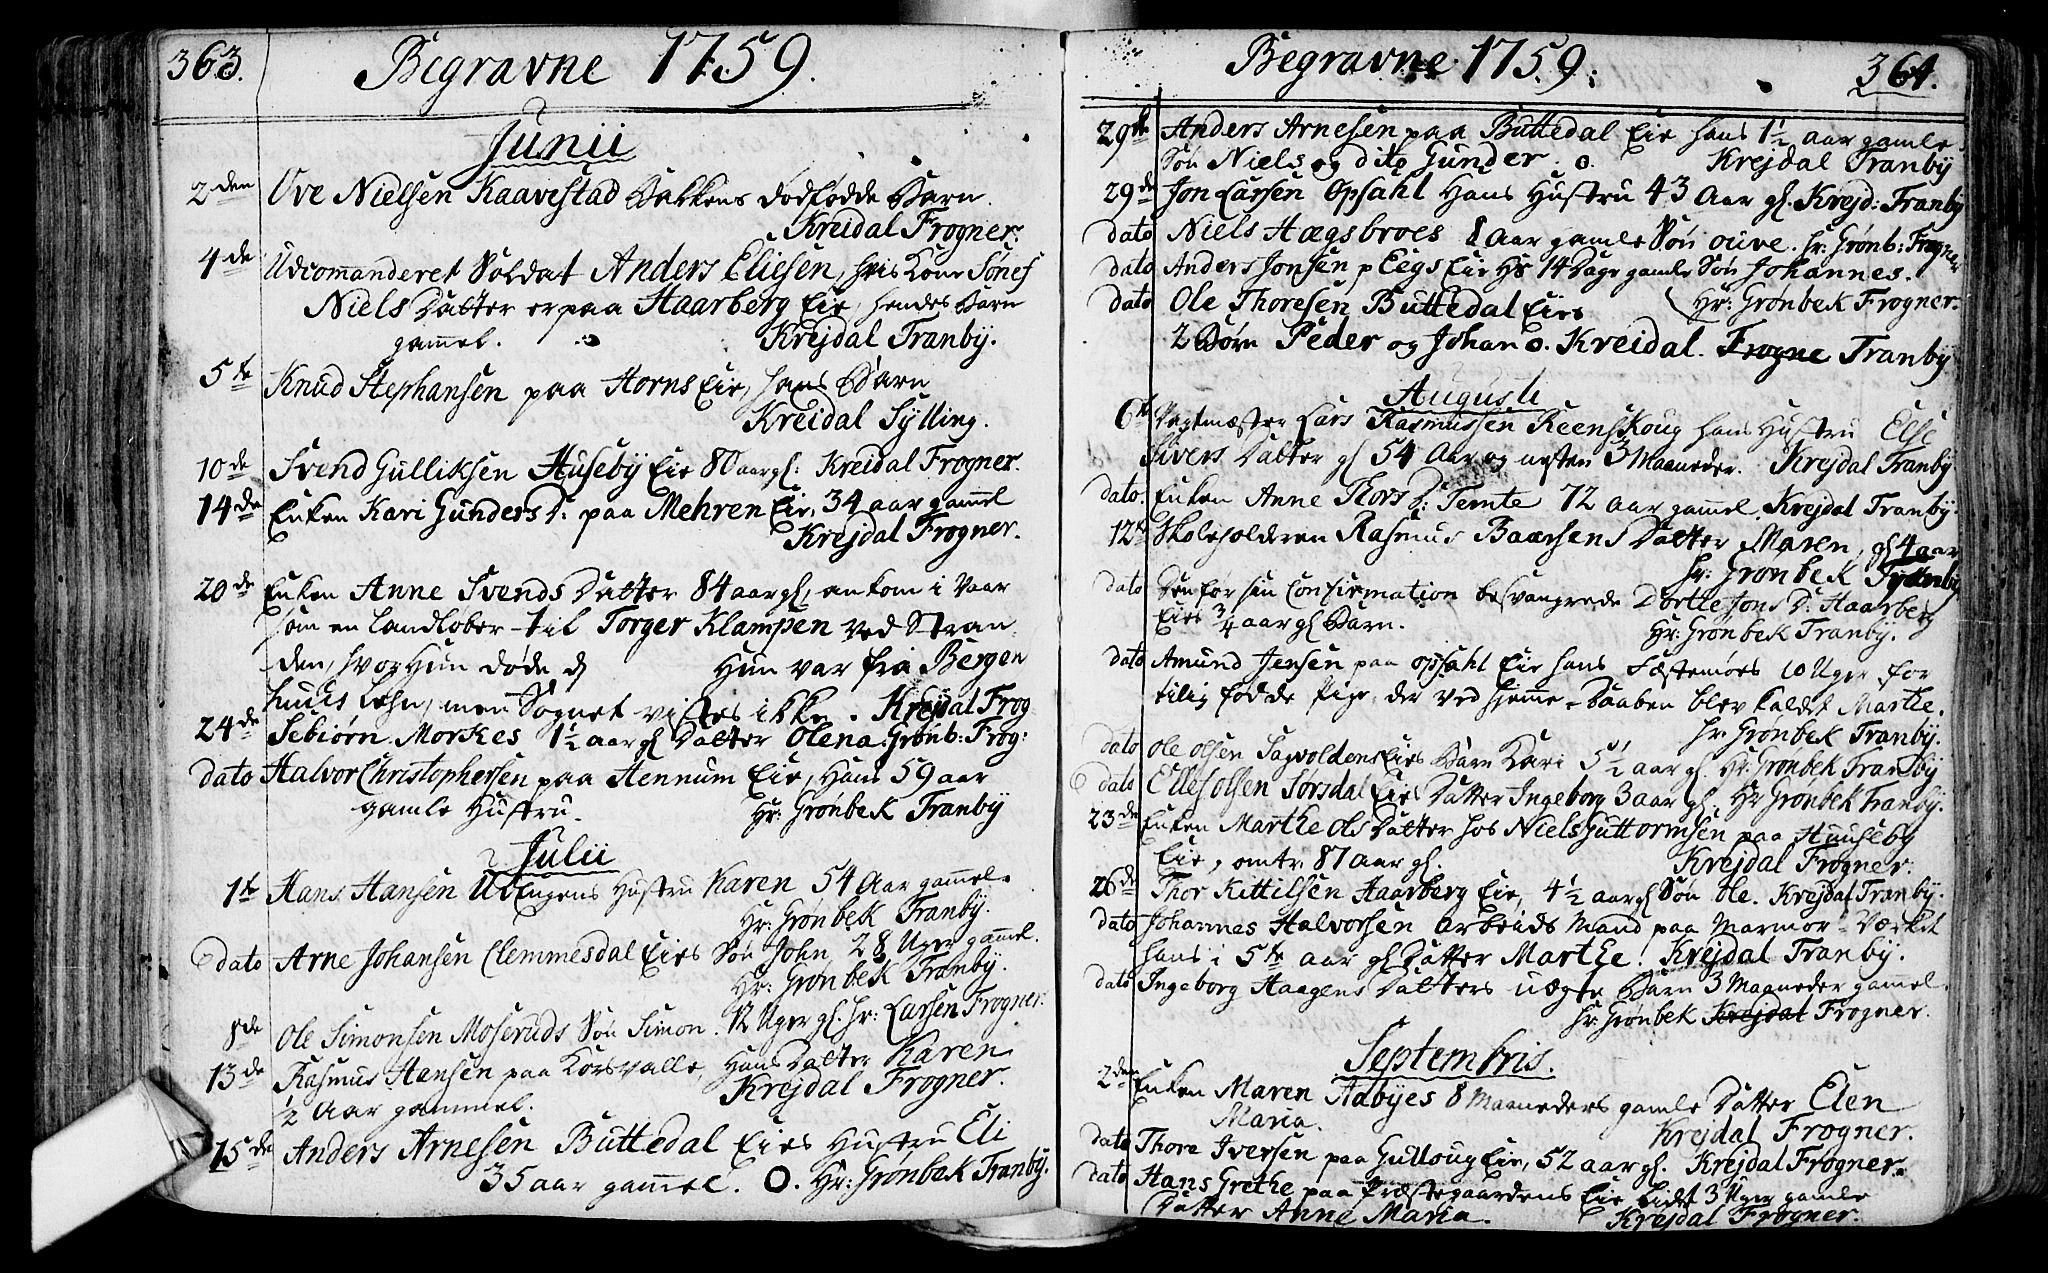 363.
Begravne 1759.
Junii
2den Ove Nielsen Kaavestad Bakkens dødfødde Barn.
Kreidal Frogner.
4de Udcomanderet Soldat Anders Eliesen, hvis Kone
Niels Datter er paa Haarberg Eie, hendes Barn
gamel. Krejdal Tranby.
5te Knud Stephansen paa Horns Eie, hans Barn
Kreidal Sylling.
10de Svend Gulliksen Huseby Eie 80 aar gl: Kreidal Frogner.
14de Enken Kari Gunders D: paa Mehren Eie, 34 aar gamel
Krejdal Frogner.
20de Enken Anne Svends Datter 84 aar gl, ankom i Vaar
som en Landløber til Torger Klampen ved Stran
den, hvor Hun døde Hun var fra Bergen
huus Lehn, men Sognet vistes ikke. Krejdal Frog
24de Sebiørn Morkes 1½ aar gl Datter Olena. Grønb: Frog:
dato Halvor Christophersen paa Hennum Eie, Hans 59 aar
gamle Hustru. Hr: Grønbek Tranby
Julii
1te Hans Hansen Ulvengens Hustru Karen 54 Aar gammel.
Hr: Grønbek Tranby.
dato Arne Johansen Clemmesdal Eies Søn John 28 Uger gamel.
Hr: Grønbek Tranby.
8de Ole Simonsen Moseruds Søn Simon. 12 Uger gl. Hr: Larsen Frogner.
13de Rasmus Hansen paa Korsvalle, Hans Datter Karen
½ Aar gammel. Krejdal Frogner.
15de Anders Arnesen Buttedal Eies Hustru Eli
35 aar gamel. O. Hr: Grønbek Tranby.
Begravne 1759:
364.
29de Anders Arnesen paa Buttedal Eie hans 1½ aar gamle
Søn Niels og dito Gunder. o. Krejdal Tranby
29de Jon Larsen Opsahl Hans Hustru 43 Aar gl. Krejd: Tranby
dato Niels Hægsbroes 8 Aar gamle Søn ouve. Hr: Grønb: Frogner
dato Anders Jonsen p Eegs Eie Hs 14 Dage gamle Søn Johannes.
Hr: Grønbek Frogner.
dato Ole Thoresen Buttedal Eies
2 Børn Peder og Johan o. Kreidal. Frogne Tranby
Augusti
6te Vagtmæster Lars Rasmussen Reenskoug hans Hustru Else
Sivers Datter gl 54 Aar og nesten 3 Maaneder. Krejdal Tranby
dato. Enken Anne Thors D: Temte 72 aar gamel. Krejdal Tranby.
12te Skoleholderen Rasmus Baarsens Datter Maren, gl 4 aar
Hr: Grønbek Tranby
dato Den for sin Confirmation besvangrede Dorthe Jons D. Haarberg
Eies ¾ aar gl Barn. Hr: Grønbek Tranby.
dato Amund Jensen paa opsahl Eie hans Fæstemøes 10 Uger for
tilig fødde Pige, der ved Hjemme-Daaben blev kaldt Marthe.
Hr Grønbek Tranby.
dato Ole Olsen Sagvoldens Eies Børn Kari 5½ aar gl. Hr: Grønbek Tranby
dato Ellef Olsen Sørsdal Eies Datter Ingeborg 3 aar gl. Hr Grønbek Tranby.
23de Enken Marthe Ols Datter hos Niels Guttormsen paa Huuseby
Eie, omtr. 87 aar gl. Krejdal Frogner.
26de Thor Kittilsen Haarberg Eie, 4½ aar gl Søn Ole. Krejdal Tranby.
dato Johannes Halvorsen Arbeids Mand paa Marmor-Værket
hans i 5te aar gl Datter Marthe. Krejdal Tranby.
dato Ingeborg Haagens Datters uægte Barn 3 Maaneder gamel.
Hr: Grønbek Krejdal Frogner.
Septembris.
2den Enken Maren Aabyes 8 Maaneders gamle Datter Elen
Maria. Krejdal Frogner.
dato Thore Iversen paa Gulloug Eie, 52 aar gl. Krejdal Frogner.
dato Hans Grethe paa Præstegaardens Eie 3 Uger gamle
Datter Anne Maria. Krejdal Frogner.